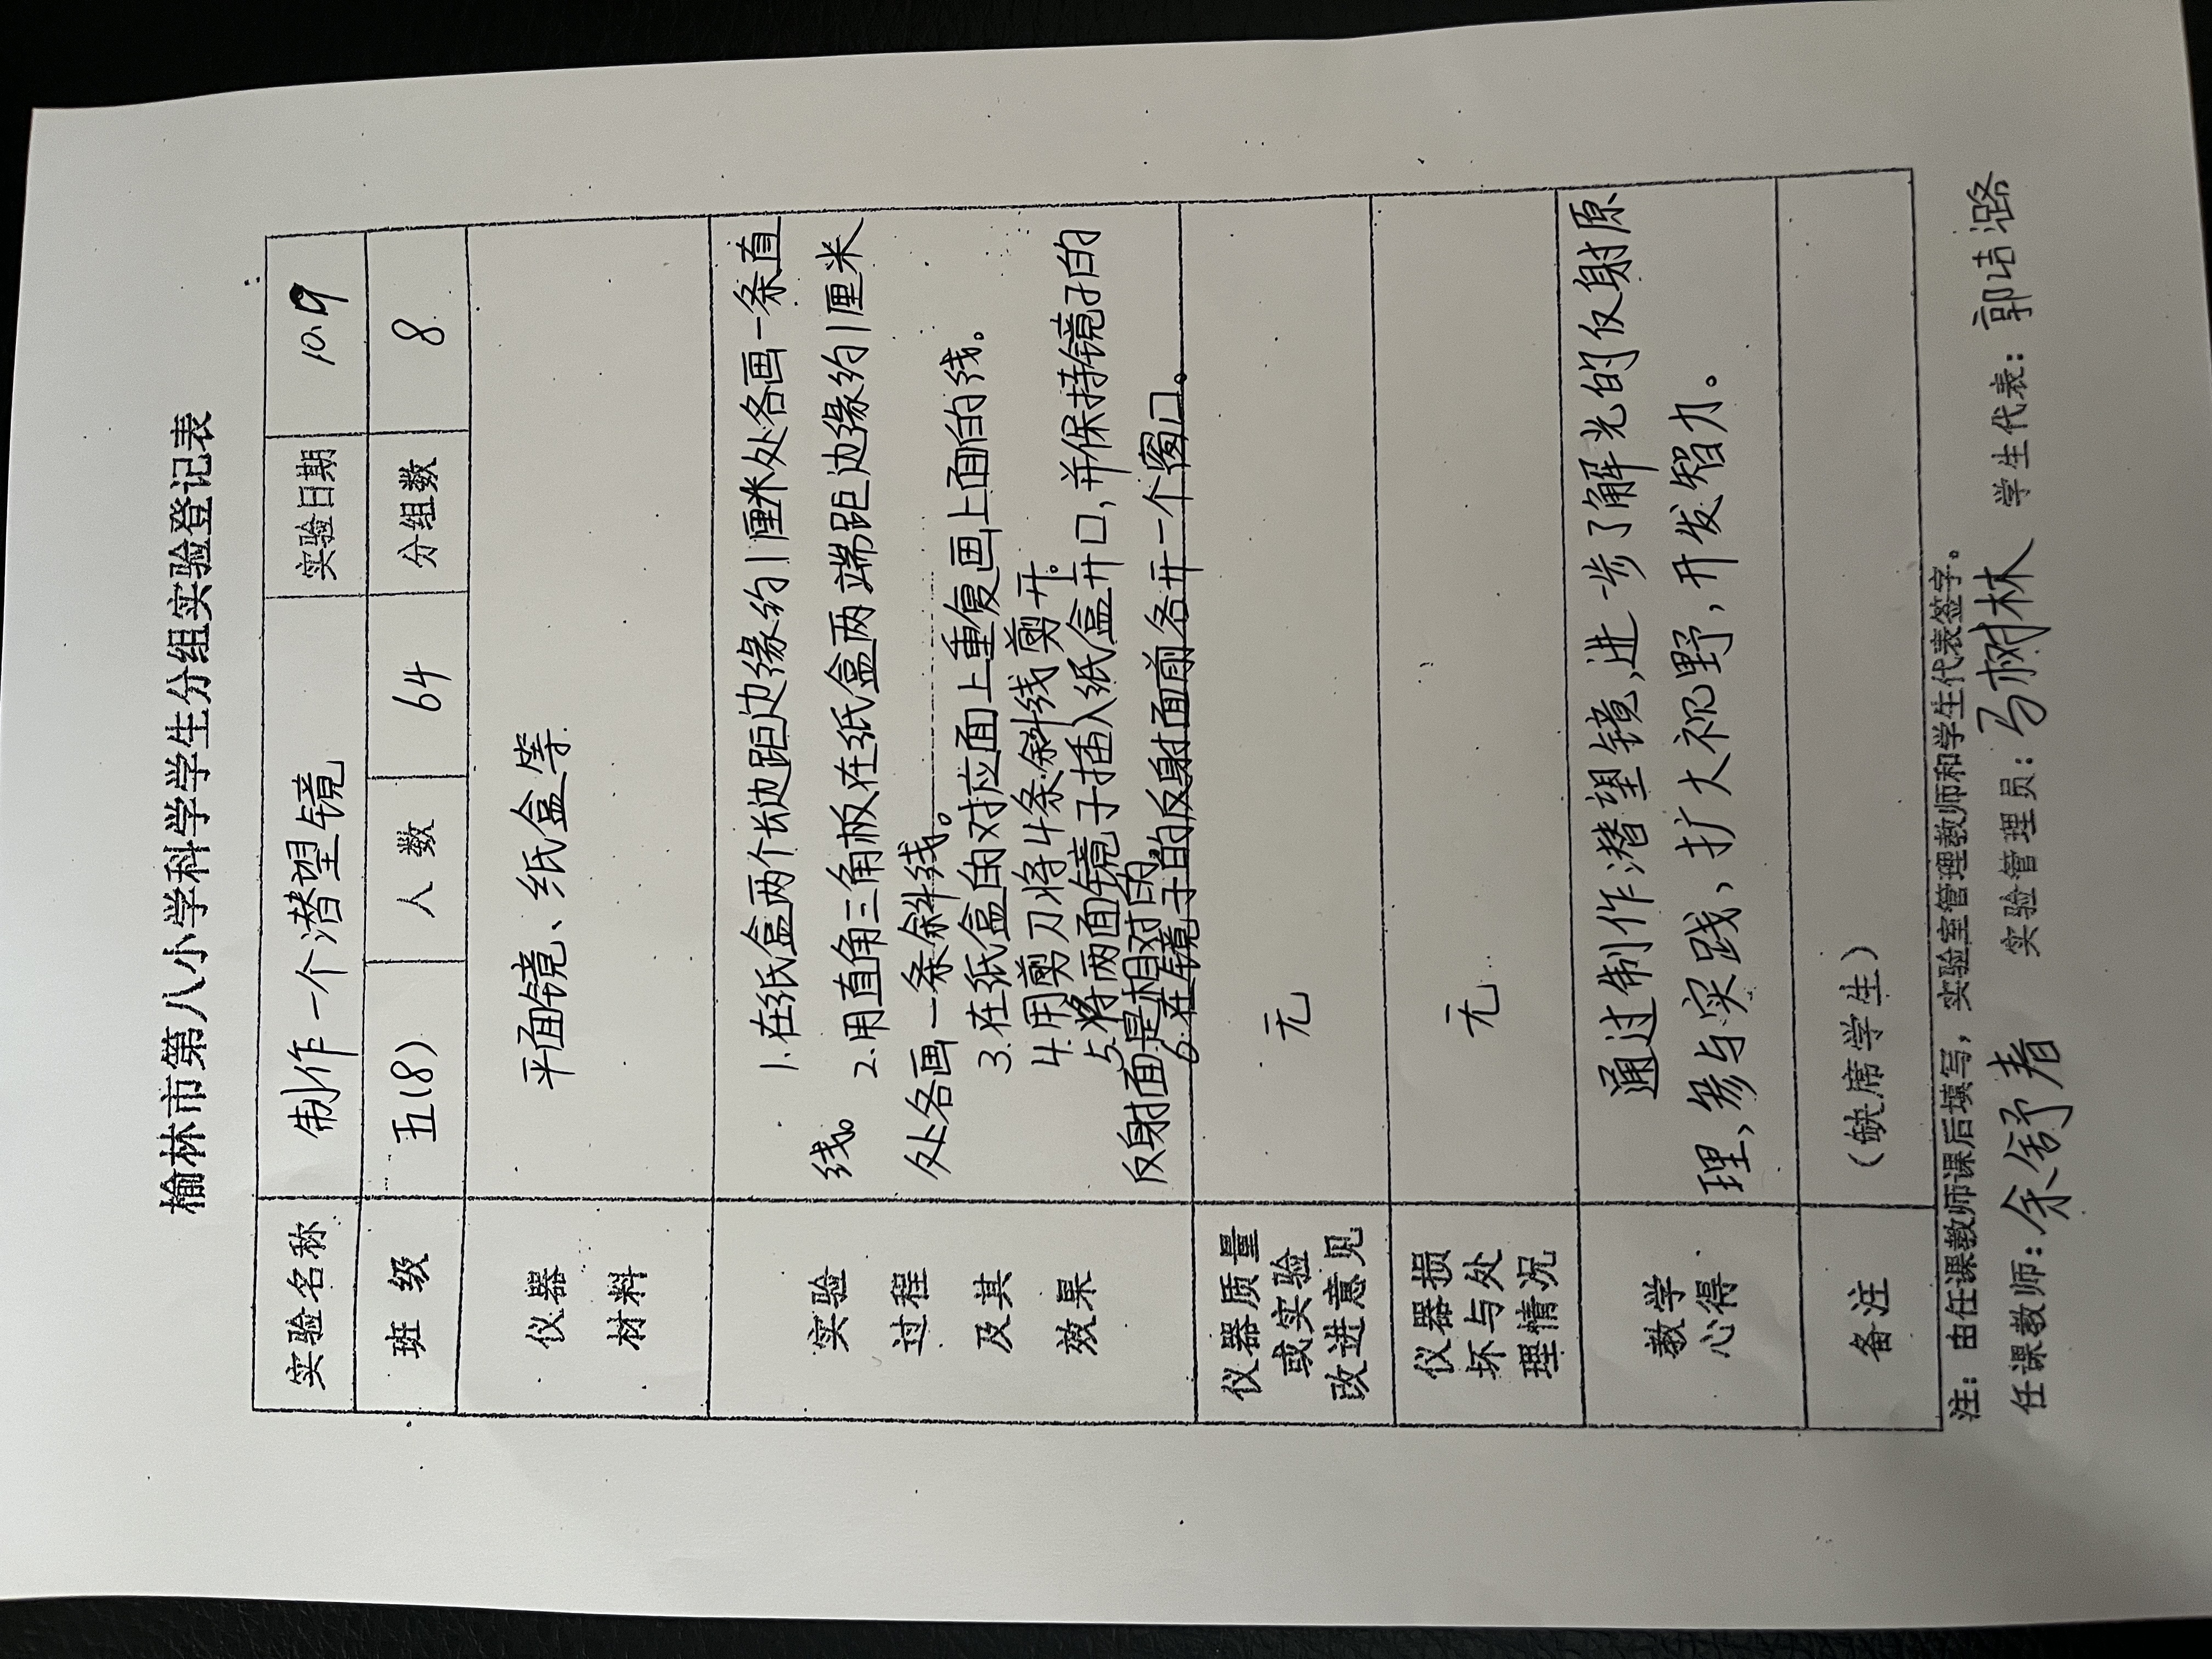 榆林市第八小学科学学生分组实验登记表
实验名称 制作一个潜望镜 实验日期 10.9
班 级 五(8) 人 数 64 分组数 8
仪器 材料 平面镜、纸盒等
实验 过程 及其 效果
1.在纸盒两个长边距边缘约1厘米处各画一条直
线。 2.用直角三角板在纸盒两端距边缘约1厘米
处各画一条斜线。
3.在纸盒的对应面上重复画上面的线。
4.用剪刀将4条斜线剪开。
5.将两面镜子插入纸盒开口,并保持镜子的
反射面是相对的。
6.在镜子的反射面前各开一个窗口。
仪器质量 无
或实验
改进意见
仪器损 无
坏与处
理情况
教学 心得
通过制作潜望镜,进一步了解光的反射原
理、参与实践、扩大视野,开发智力。
备注 (缺席学生)
注：由任课教师课后填写，实验室管理教师和学生代表签字。
任课教师: 余舒春 实验管理员: 马树林 学生代表: 郭洁璐